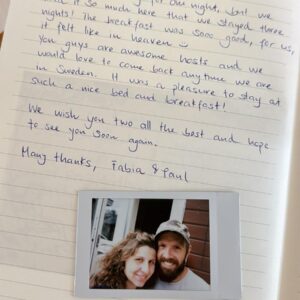 for one night, but we
it so much here that we stayed three
nights! The breakfast was sooo good, for us,
it felt like in heaven
You guys are awesome hosts and we
would love to come back anytime we are
in Sweden. It was a pleasure to stay at
such a nice bed and breakfast!
We wish you two all the best and hope
to see you soon again.
Many thanks, Fabia & Paul